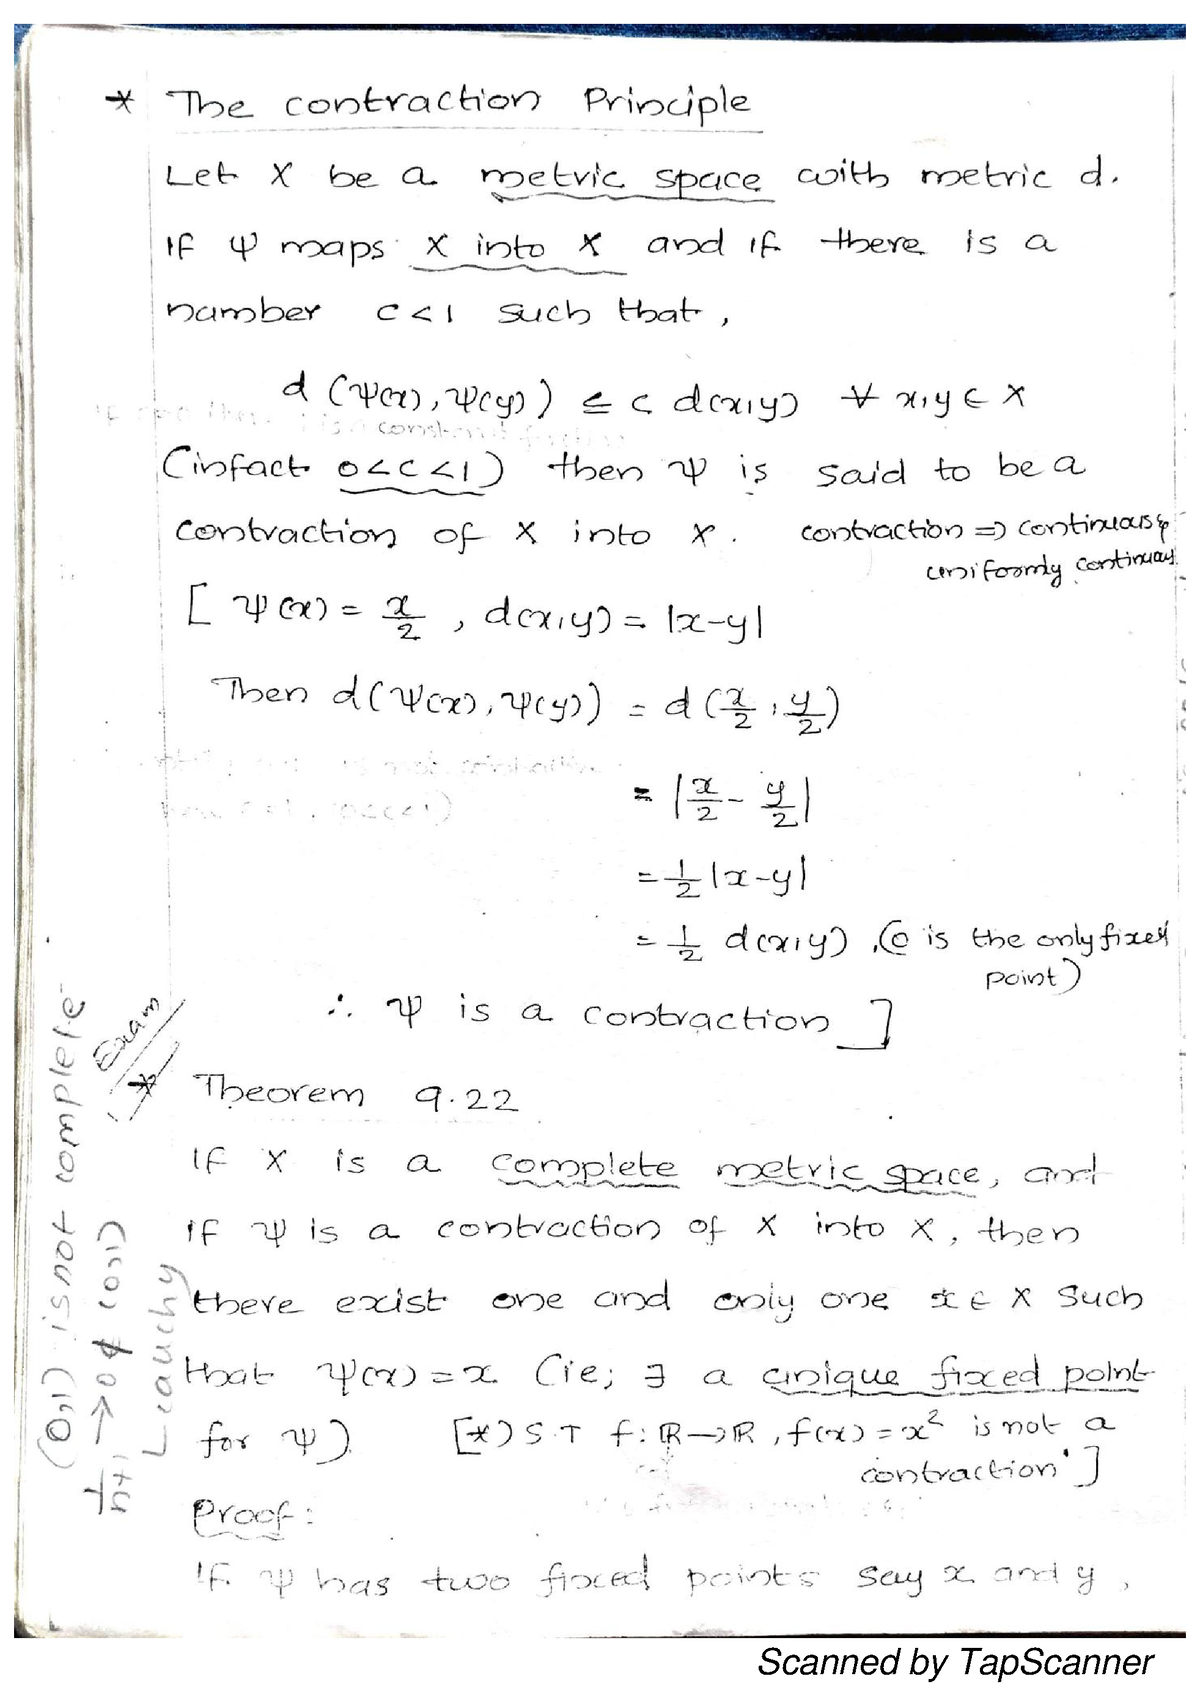 * The contraction Principle
Let X be a metric space with metric d.
If ψ maps X into X and if there is a
number c<1 such that,
d (ψ(x), ψ(y)) ≤ c d(x,y) ∀ x,y ∈ X
(infact 0<c<1) then ψ is said to be a
contraction of X into X. contraction ⇒ continuous &
uniformly continuous
[ ψ(x) = x/2 , d(x,y) = |x-y|
Then d(ψ(x), ψ(y)) = d(x/2, y/2)
= |x/2 - y/2|
= 1/2 |x-y|
= 1/2 d(x,y) , (0 is the only fixed
point)
∴ ψ is a contraction ]
Exam
* Theorem 9.22
If X is a complete metric space, and
if ψ is a contraction of X into X, then
there exist one and only one x ∈ X such
that ψ(x) = x (ie; ∃ a unique fixed point
for ψ) [*) S.T f: ℝ→ℝ, f(x) = x² is not a
contraction]
Proof:
If ψ has two fixed points say x and y,
(0,1) is not complete
1/n+1 → 0 ∉ (0,1)
cauchy
Scanned by TapScanner